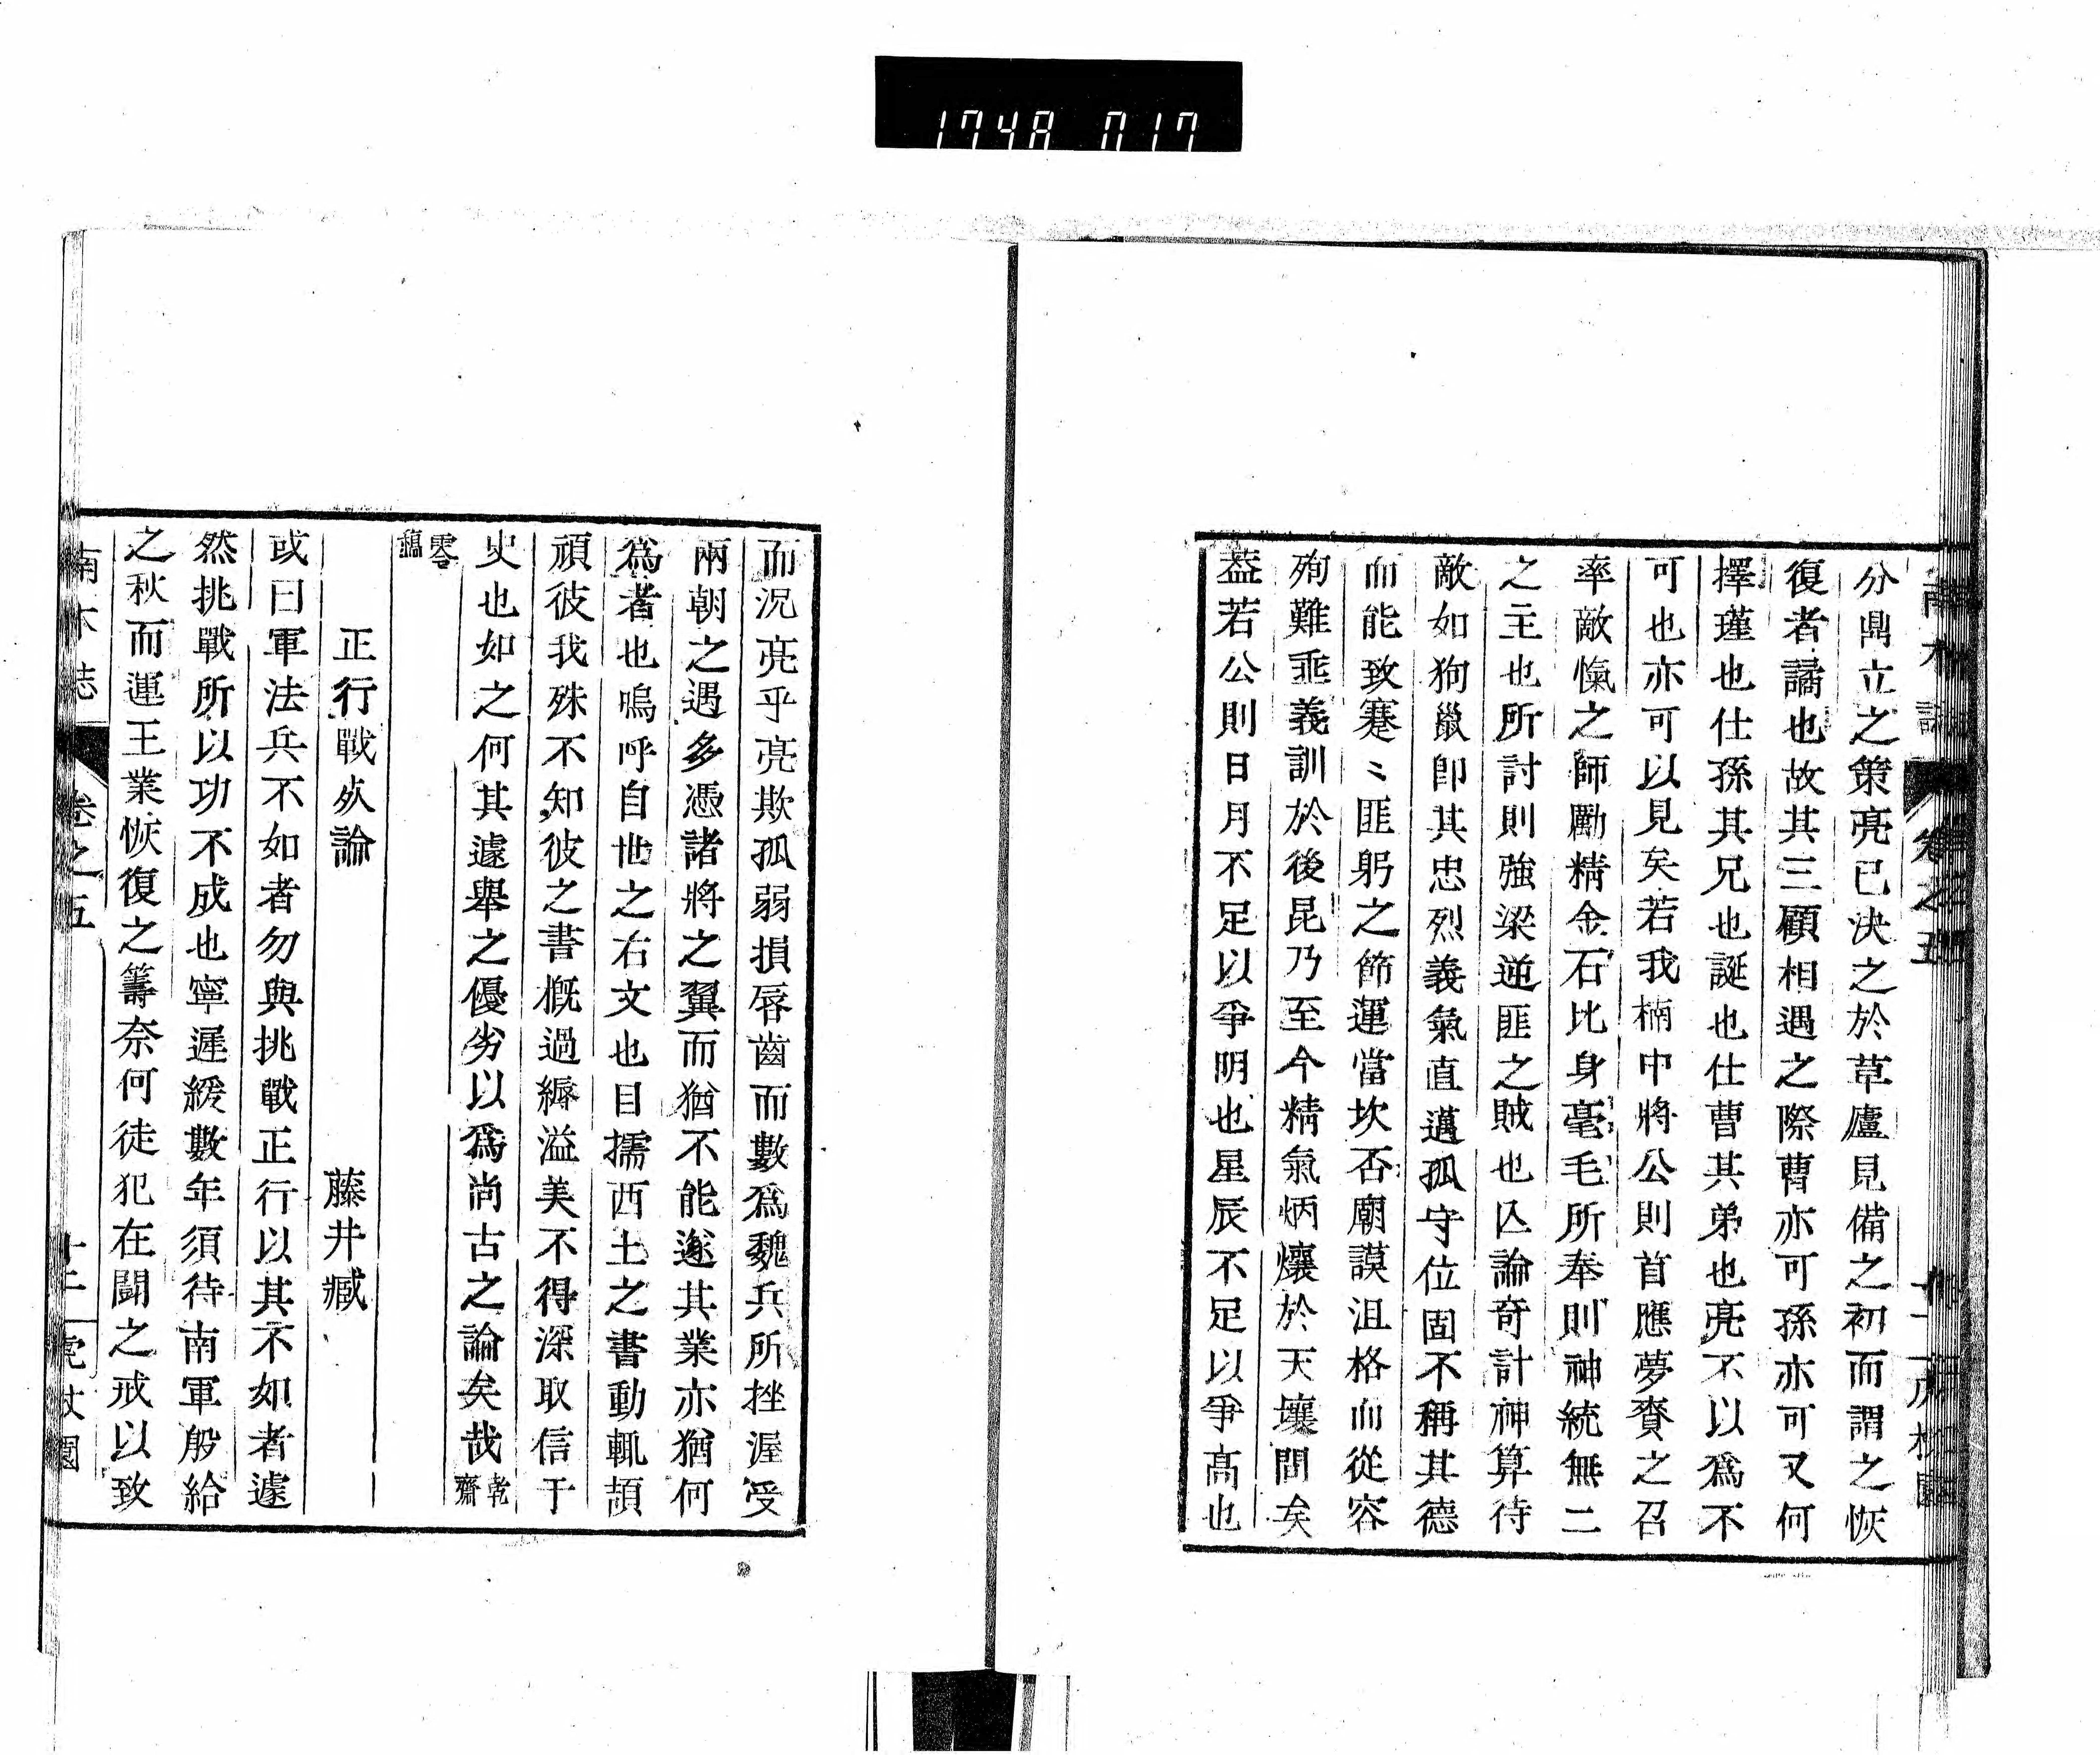 1748 017
分鼎立之策亮已決之於草廬見備之初而謂之恢
復者譎也故其三顧相遇之際曹亦可孫亦可又何
擇瑾也仕孫其兄也誕也仕曹其弟也亮不以爲不
可也亦可以見矣若我楠中將公則首應夢賚之召
率敵愾之師勵精金石比身毫毛所奉則神統無二
之主也所討則強梁逆匪之賊也亾論奇計神算待
敵如狗鼠卽其忠烈義氣直邁孤守位固不稱其德
而能致蹇〻匪躬之節運當坎否廟謨沮格而從容
殉難垂義訓於後昆乃至今精氣炳爤於天壤間矣
葢若公則日月不足以爭明也星辰不足以爭高也
而況亮乎亮欺孤弱損唇齒而數爲魏兵所挫渥受
兩朝之遇多憑諸將之翼而猶不能遂其業亦猶何
爲者也嗚呼自世之右文也目擩西土之書動輒頡
頏彼我殊不知彼之書槪過縟溢美不得深取信于
史也如之何其遽舉之優劣以爲尚古之論矣哉 乾齋
零藁
正行戰歿論 藤井臧
或曰軍法兵不如者勿與挑戰正行以其不如者遽
然挑戰所以功不成也寧遲緩數年須待南軍般給
之秋而運王業恢復之籌奈何徒犯在鬪之戒以致
南木誌 卷之五 十二